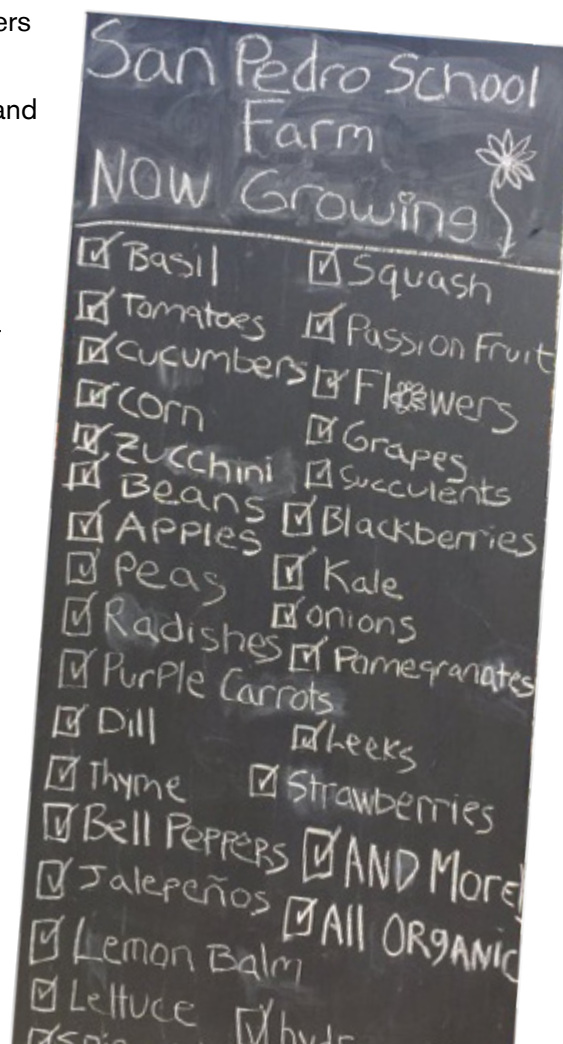 ers
and
San Pedro School
Farm
Now Growing
Basil
Tomatoes
Cucumbers
Corn
Zucchini
Beans
Apples
Peas
Radishes
Purple Carrots
Dill
Thyme
Bell Peppers
Jalepeños
Lemon Balm
Lettuce
Squash
Passion Fruit
Flowers
Grapes
Succulents
Blackberries
Kale
onions
Pomegranates
Leeks
Strawberries
AND More!
All ORGANIC